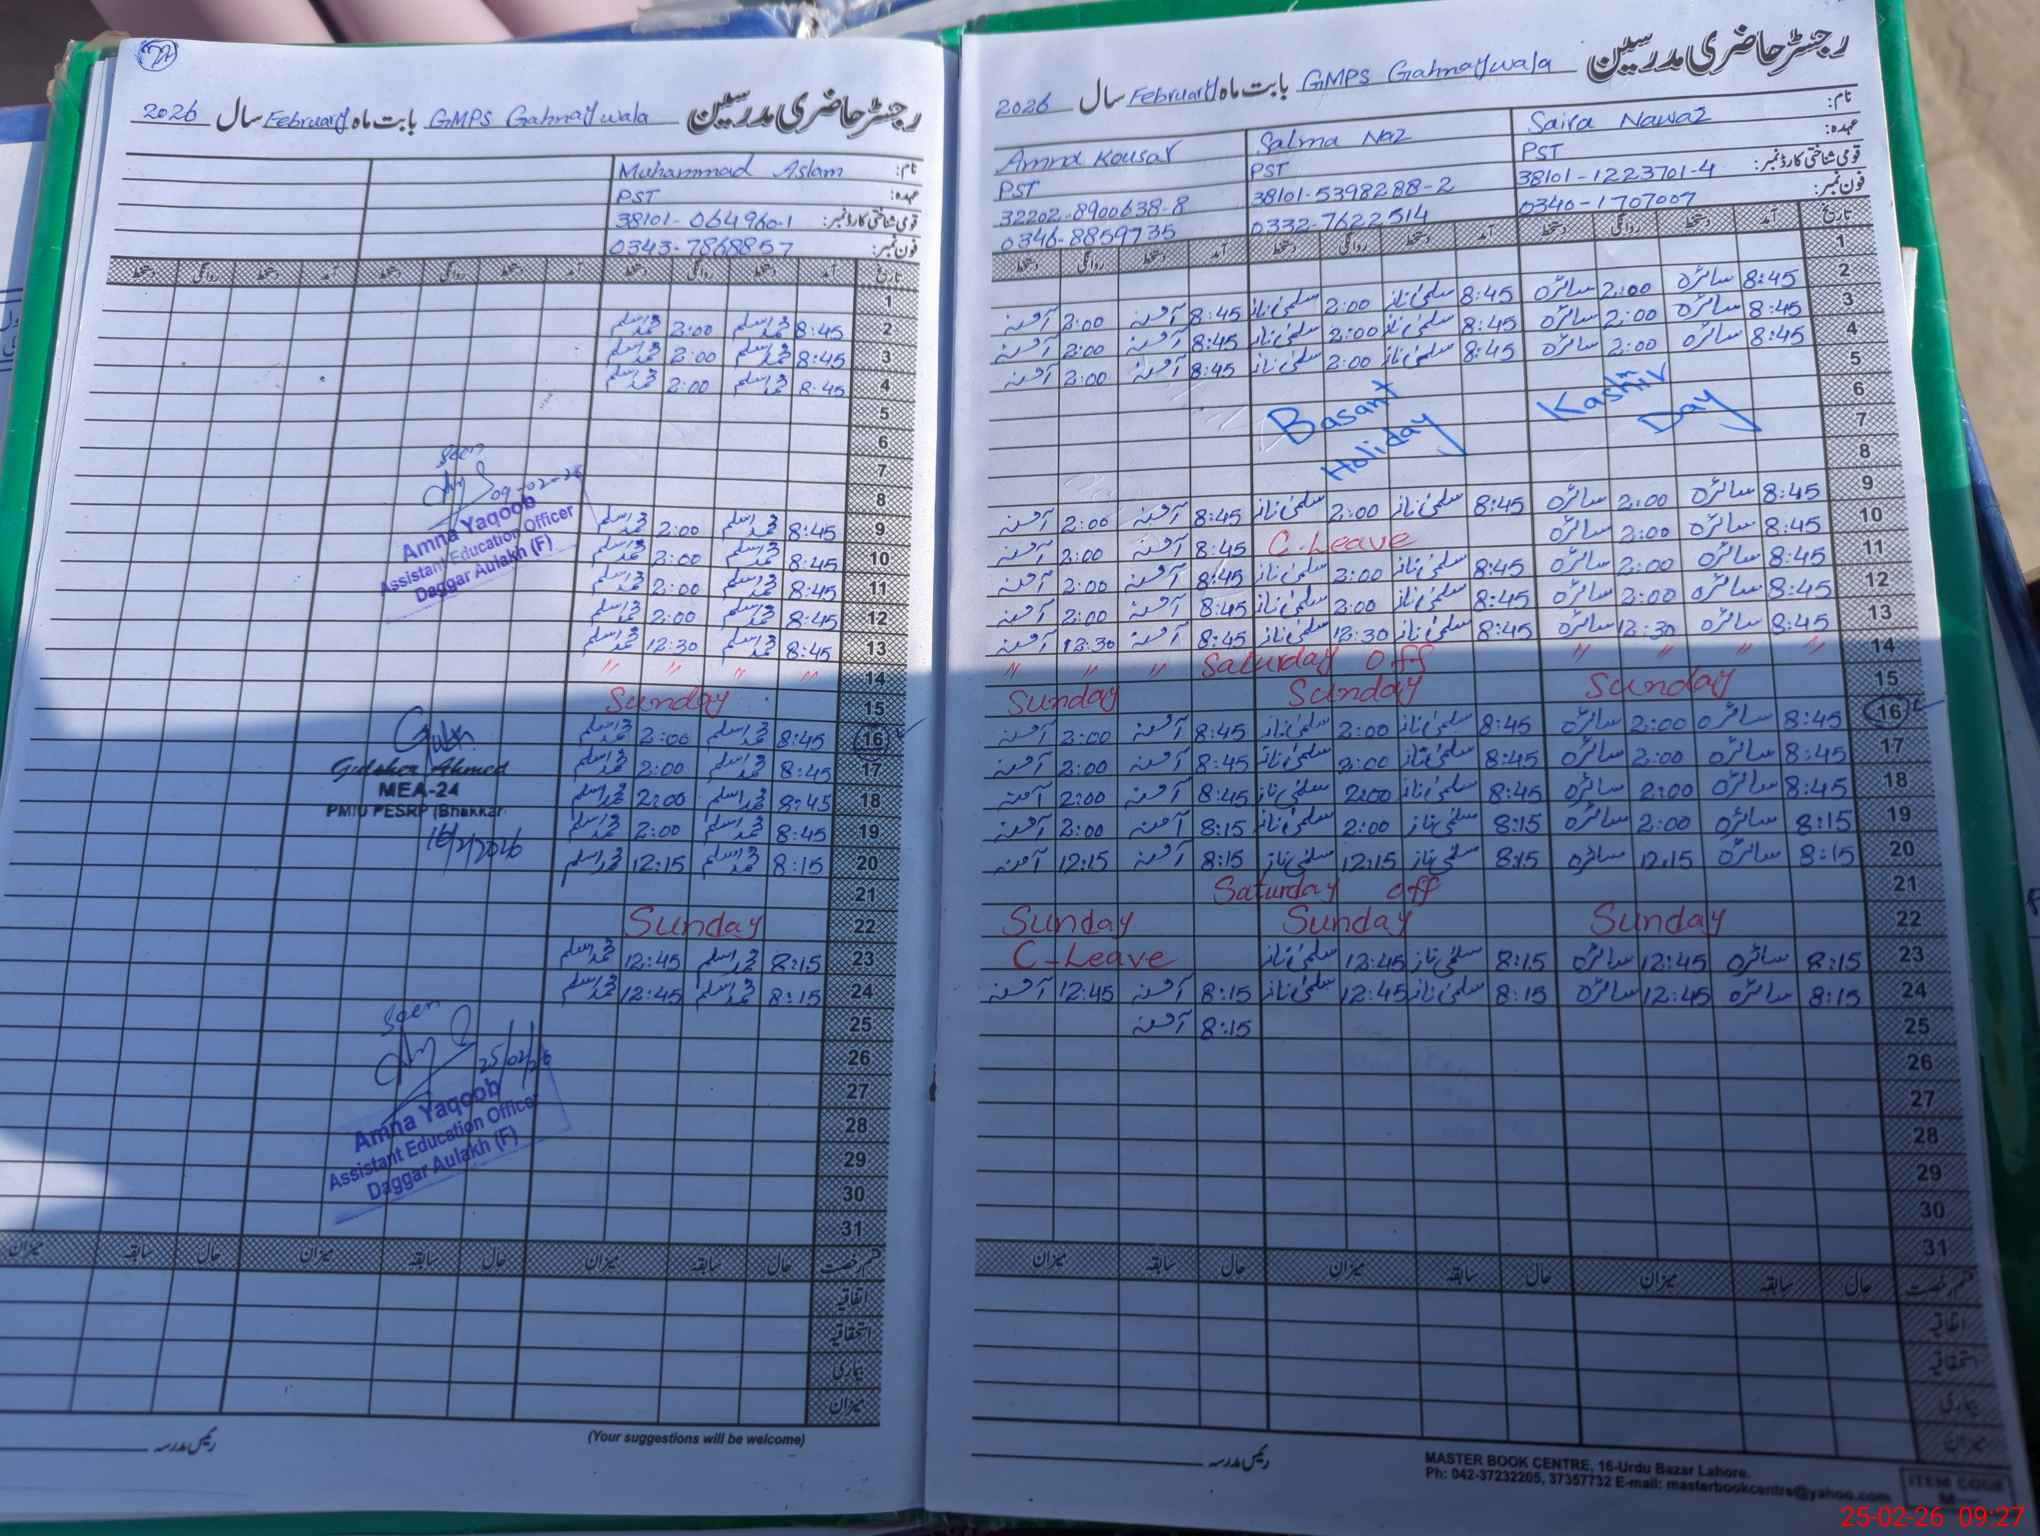 رجسٹر حاضری مدرسین GMPS Gahnaywala بابت ماہ February سال 2026
نام: Muhammad Aslam
عہدہ: PST
قومی شناختی کارڈ نمبر: 38101-0649601
فون نمبر: 0343-7868857
تاریخ آمد دستخط روانگی دستخط آمد دستخط روانگی دستخط آمد دستخط روانگی دستخط
1
2 8:45 محمد اسلم 2:00 محمد اسلم
3 8:45 محمد اسلم 2:00 محمد اسلم
4 8:45 محمد اسلم 2:00 محمد اسلم
5
6
7
8
9 8:45 محمد اسلم 2:00 محمد اسلم
10 8:45 محمد اسلم 2:00 محمد اسلم
11 8:45 محمد اسلم 2:00 محمد اسلم
12 8:45 محمد اسلم 2:00 محمد اسلم
13 8:45 محمد اسلم 12:30 محمد اسلم
14 " " " "
15 Sunday
16 8:45 محمد اسلم 2:00 محمد اسلم
17 8:45 محمد اسلم 2:00 محمد اسلم
18 8:45 محمد اسلم 2:00 محمد اسلم
19 8:45 محمد اسلم 2:00 محمد اسلم
20 8:15 محمد اسلم 12:15 محمد اسلم
21
22 Sunday
23 8:15 محمد اسلم 12:45 محمد اسلم
24 8:15 محمد اسلم 12:45 محمد اسلم
25
26
27
28
29
30
31
Seen
09-02-26
Amna Yaqoob
Assistant Education Officer
Daggar Aulakh (F)
Gulsher Ahmed
MEA-24
PMIU PESRP (Bhakkar
16/2/2026
Seen
25/02/26
Amna Yaqoob
Assistant Education Officer
Daggar Aulakh (F)
قسم رخصت حال سابقہ میزان حال سابقہ میزان حال سابقہ میزان
اتفاقیہ
استحقاقیہ
بیماری
میزان
رئیس مدرسہ
(Your suggestions will be welcome)
رجسٹر حاضری مدرسین GMPS Gahnaywala بابت ماہ February سال 2026
نام: Saira Nawaz Salma Naz Amna Kousar
عہدہ: PST PST PST
قومی شناختی کارڈ نمبر: 38101-1223701-4 38101-5398288-2 32202-8900638-8
فون نمبر: 0340-1707007 0332-7622514 0346-8859735
تاریخ آمد دستخط روانگی دستخط آمد دستخط روانگی دستخط آمد دستخط روانگی دستخط
1
2 8:45 سائرہ 2:00 سائرہ 8:45 سلمیٰ ناز 2:00 سلمیٰ ناز 8:45 آمنہ 2:00 آمنہ
3 8:45 سائرہ 2:00 سائرہ 8:45 سلمیٰ ناز 2:00 سلمیٰ ناز 8:45 آمنہ 2:00 آمنہ
4 8:45 سائرہ 2:00 سائرہ 8:45 سلمیٰ ناز 2:00 سلمیٰ ناز 8:45 آمنہ 2:00 آمنہ
5 Kashmir Day
6 Basant Holiday
7
8
9 8:45 سائرہ 2:00 سائرہ 8:45 سلمیٰ ناز 2:00 سلمیٰ ناز 8:45 آمنہ 2:00 آمنہ
10 8:45 سائرہ 2:00 سائرہ C-Leave 8:45 آمنہ 2:00 آمنہ
11 8:45 سائرہ 2:00 سائرہ 8:45 سلمیٰ ناز 2:00 سلمیٰ ناز 8:45 آمنہ 2:00 آمنہ
12 8:45 سائرہ 2:00 سائرہ 8:45 سلمیٰ ناز 2:00 سلمیٰ ناز 8:45 آمنہ 2:00 آمنہ
13 8:45 سائرہ 12:30 سائرہ 8:45 سلمیٰ ناز 12:30 سلمیٰ ناز 8:45 آمنہ 12:30 آمنہ
14 " " " " Saturday off " " "
15 Sunday Sunday Sunday
16 8:45 سائرہ 2:00 سائرہ 8:45 سلمیٰ ناز 2:00 سلمیٰ ناز 8:45 آمنہ 2:00 آمنہ
17 8:45 سائرہ 2:00 سائرہ 8:45 سلمیٰ ناز 2:00 سلمیٰ ناز 8:45 آمنہ 2:00 آمنہ
18 8:45 سائرہ 2:00 سائرہ 8:45 سلمیٰ ناز 2:00 سلمیٰ ناز 8:45 آمنہ 2:00 آمنہ
19 8:15 سائرہ 2:00 سائرہ 8:15 سلمیٰ ناز 2:00 سلمیٰ ناز 8:15 آمنہ 2:00 آمنہ
20 8:15 سائرہ 12:15 سائرہ 8:15 سلمیٰ ناز 12:15 سلمیٰ ناز 8:15 آمنہ 12:15 آمنہ
21 Saturday off
22 Sunday Sunday Sunday
23 8:15 سائرہ 12:45 سائرہ 8:15 سلمیٰ ناز 12:45 سلمیٰ ناز C-Leave
24 8:15 سائرہ 12:45 سائرہ 8:15 سلمیٰ ناز 12:45 سلمیٰ ناز 8:15 آمنہ 12:45 آمنہ
25 8:15 آمنہ
26
27
28
29
30
31
قسم رخصت حال سابقہ میزان حال سابقہ میزان حال سابقہ میزان
اتفاقیہ
استحقاقیہ
بیماری
میزان
رئیس مدرسہ
MASTER BOOK CENTRE, 16-Urdu Bazar Lahore.
Ph: 042-37232205, 37357732 E-mail: masterbookcentre@yahoo.com
ITEM CODE
25-02-26 09:27